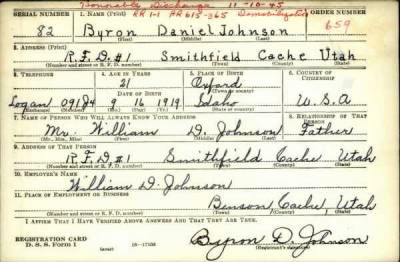 Honorably Discharge 11-10-45
SERIAL NUMBER 1. NAME (Print) RR 1-1 RR 615-365 Demobilization ORDER NUMBER
82 Byron Daniel Johnson 659
(First) (Middle) (Last)
2. ADDRESS (Print)
R.F.D. #1 Smithfield Cache Utah
(Number and street or R. F. D. number) (Town) (County) (State)
3. TELEPHONE 4. AGE IN YEARS 5. PLACE OF BIRTH 6. COUNTRY OF CITIZENSHIP
21 Oxford
DATE OF BIRTH (Town or county)
Logan 091J4 9 16 1919 Idaho U.S.A
(Exchange) (Number) (Mo.) (Day) (Yr.) (State or country)
7. NAME OF PERSON WHO WILL ALWAYS KNOW YOUR ADDRESS 8. RELATIONSHIP OF THAT PERSON
Mr. William D. Johnson Father
(Mr., Mrs., Miss) (First) (Middle) (Last)
9. ADDRESS OF THAT PERSON
R.F.D #1 Smithfield Cache, Utah
(Number and street or R. F. D. number) (Town) (County) (State)
10. EMPLOYER'S NAME
William D. Johnson
11. PLACE OF EMPLOYMENT OR BUSINESS
Benson, Cache, Utah
(Number and street or R. F. D. number) (Town) (County) (State)
I AFFIRM THAT I HAVE VERIFIED ABOVE ANSWERS AND THAT THEY ARE TRUE.
REGISTRATION CARD
D. S. S. Form 1 (over) 16-17105 Byron D. Johnson
(Registrant's signature)